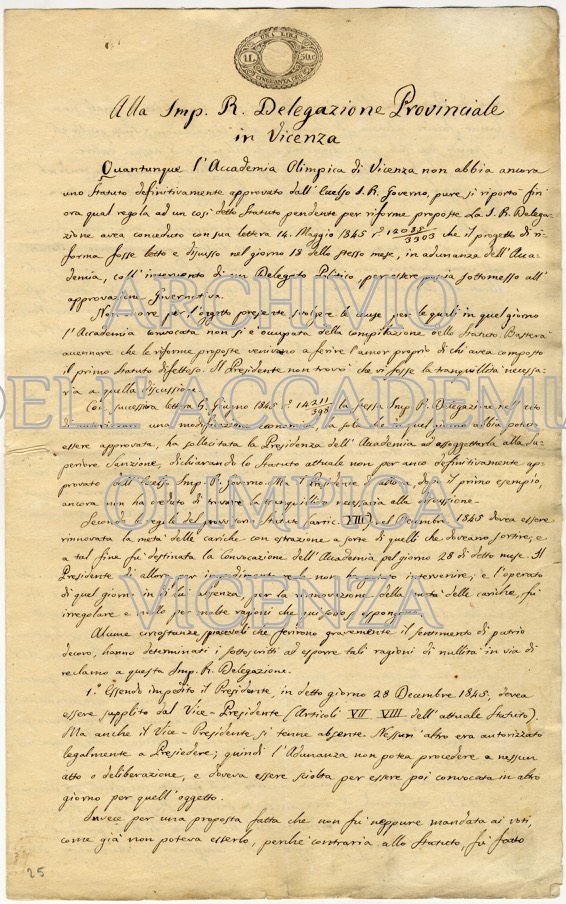 UNA LIRA
1L. 50C.
CINQUANTA CEN.
Alla Imp. R. Delegazione Provinciale
in Vicenza
Quantunque l'Accademia Olimpica di Vicenza non abbia ancora
uno Statuto definitivamente approvato dall'Eccelso I. R. Governo, pure si riportò fin
ora qual regola ad un così detto Statuto pendente per riforme proposte. La I. R. Delega-
zione avea conceduto con sua lettera 14. Maggio 1845 N.° 12035/3303 che il progetto di ri-
forma fosse letto e discusso nel giorno 18 dello stesso mese, in adunanza dell'Acca-
demia, coll'intervento di un Delegato Politico, per essere poscia sottomesso all'
approvazione Governativa.
Non occorre per l'oggetto presente svolgere le cause per le quali in quel giorno
l'Accademia convocata non si è occupata della compilazione dello Statuto. Basterà
accennare che le riforme proposte venivano a ferire l'amor proprio di chi avea composto
il primo Statuto difettoso. Il Presidente non trovò che vi fosse la tranquillità necessa-
ria a quella discussione.
Con successiva lettera 6. Giugno 1845 N.° 14211/398 la stessa Imp. R. Delegazione nell'atto
di autorizzare una modificazione economica, la sola che in quel giorno abbia potuto
essere approvata, ha sollecitata la Presidenza dell'Accademia ad assoggettarla alla Su-
periore Sanzione, dichiarando lo Statuto attuale non per anco definitivamente ap-
provato dall'Eccelso Imp. R. Governo. Ma il Presidente d'allora, dopo il primo esempio,
ancora non ha creduto di trovare la tranquillità necessaria alla discussione.
Secondo le regole del provvisorio Statuto (artic. VIII) nel Decembre 1845 dovea essere
rinnovata la metà delle cariche con estrazione a sorte di quelli che doveano sortire; e
a tal fine fu destinata la Convocazione dell'Accademia pel giorno 28 di detto mese. Il
Presidente di allora per impedimento non potevavi intervenire; e l'operato
di quel giorno in di lui assenza, per la rinnovazione della metà delle cariche, fu
irregolare e nullo per molte ragioni che qui sotto si espongono.
Alcune circostanze spiacevoli che ferirono gravemente il sentimento di patrio
decoro, hanno determinati i sottoscritti ad esporre tali ragioni di nullità in via di
reclamo a questa Imp. R. Delegazione.
1.° Essendo impedito il Presidente, in detto giorno 28 Decembre 1845, dovea
essere supplito dal Vice-Presidente (Articoli VII VIII dell'attuale Statuto).
Ma anche il Vice-Presidente si tenne absente. Nessun'altro era autorizzato
legalmente a Presiedere; quindi l'Adunanza non potea procedere a nessun
atto o deliberazione, e doveva essere sciolta per essere poi convocata in altro
giorno per quell'oggetto.
Invece per una proposta fatta che non fu neppure mandata ai voti,
come già non poteva esserlo, perché contraria allo Statuto, fu fatto
25
ARCHIVIO
DELL'ACCADEMIA
OLIMPICA
VICENZA